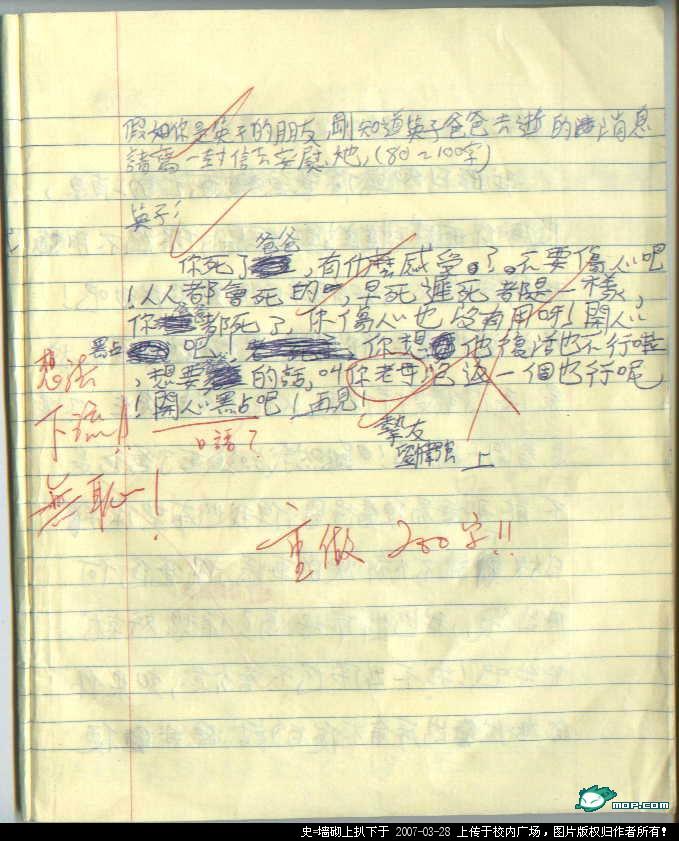 假如你是英子的朋友,剛知道英子爸爸去逝的消息
請寫一封信去安慰她,(80~100字)
英子:
爸爸
你死了,有什麼感受。了。不要傷心吧
!人人都會死的,早死遲死都是一樣,
你都死了,你傷心也沒有用呀!開心
點吧,你想他復活也不行啦
,想要的話,叫你老母吧返一個也行呢
!開心點吧!再見
摯友
上
想法
下流!!
無恥!
口語?
重做 200字!!
mop.com
史=墙砌上扒下于 2007-03-28 上传于校内广场,图片版权归作者所有!